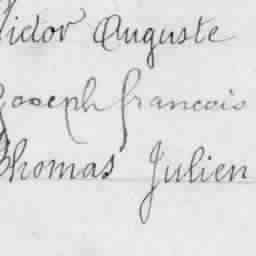 Victor Auguste
Joseph francois
Thomas Julien